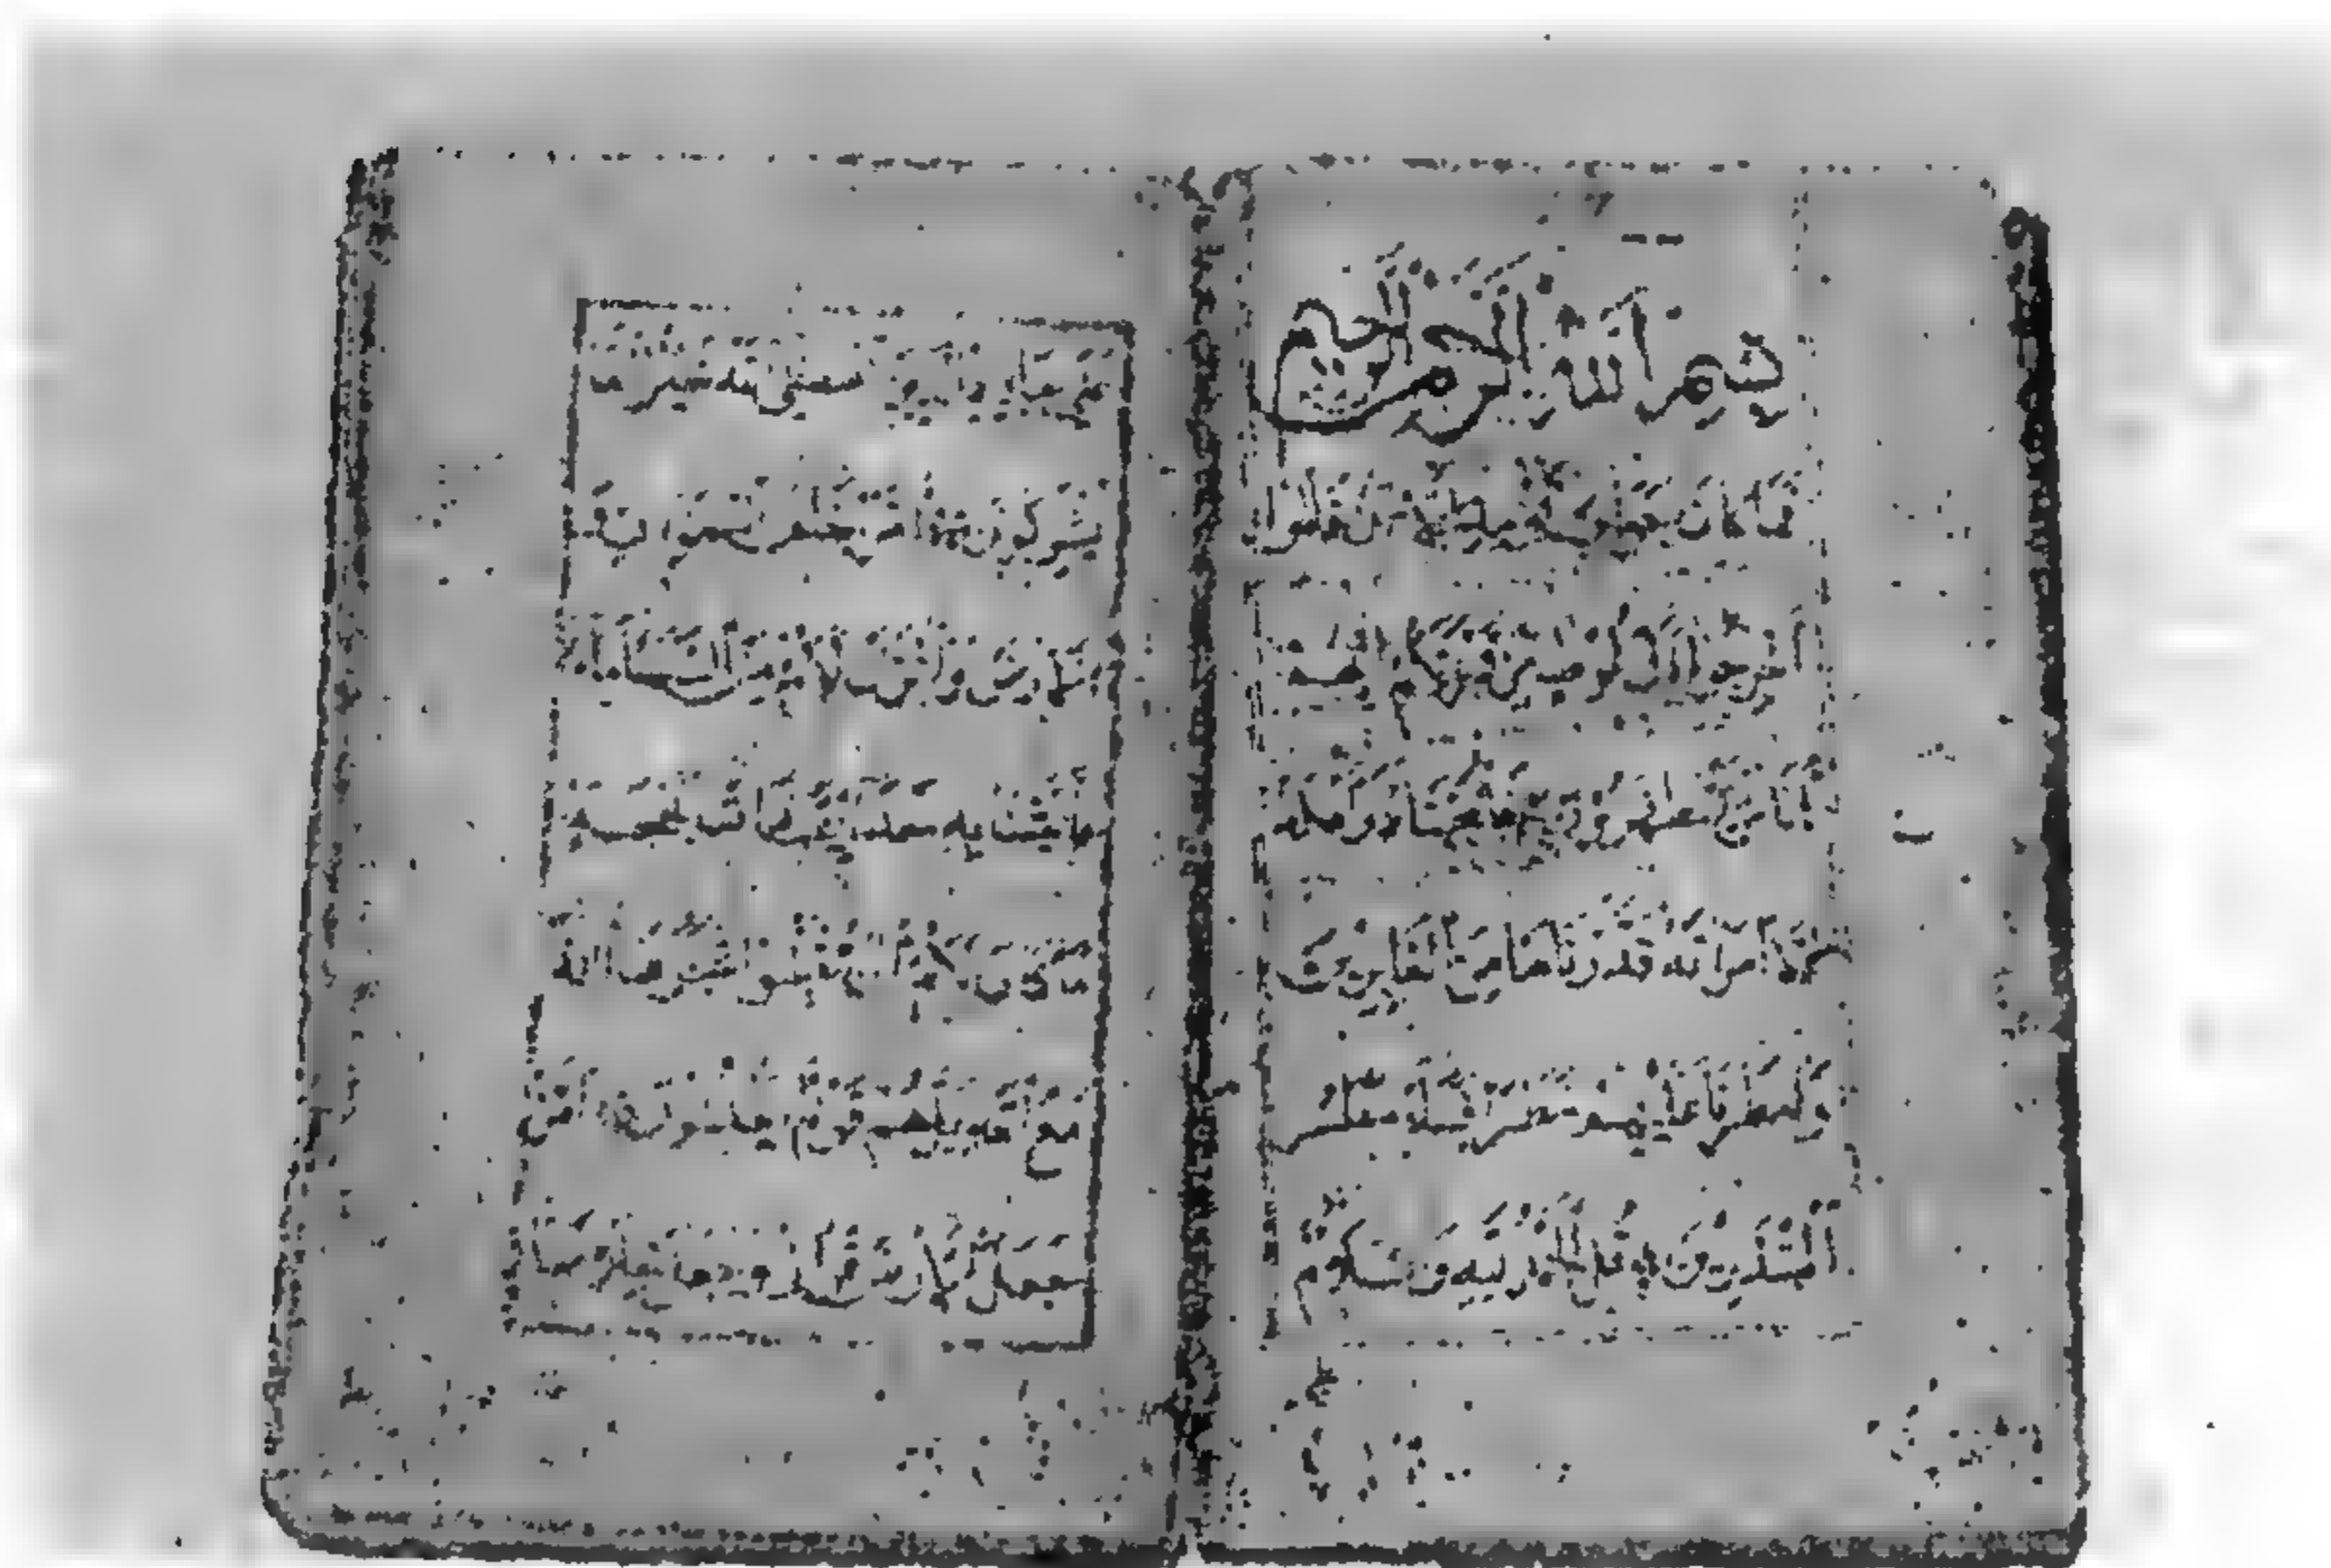 بسم الله الرحمن الرحيم
فما كان جواب قومه إلا أن قالوا
أخرجوا آل لوط من قريتكم إنهم
أناس يتطهرون فأنجيناه وأهله
إلا امرأته قدرناها من الغابرين
وأمطرنا عليهم مطرا فساء مطر
المنذرين قل الحمد لله وسلام
على عباده الذين اصطفى آلله خير أما
يشركون أمن خلق السموات
والأرض وأنزل لكم من السماء
ماء فأنبتنا به حدائق ذات بهجة
ما كان لكم أن تنبتوا شجرها أإله
مع الله بل هم قوم يعدلون أمن
جعل الأرض قرارا وجعل خلالها